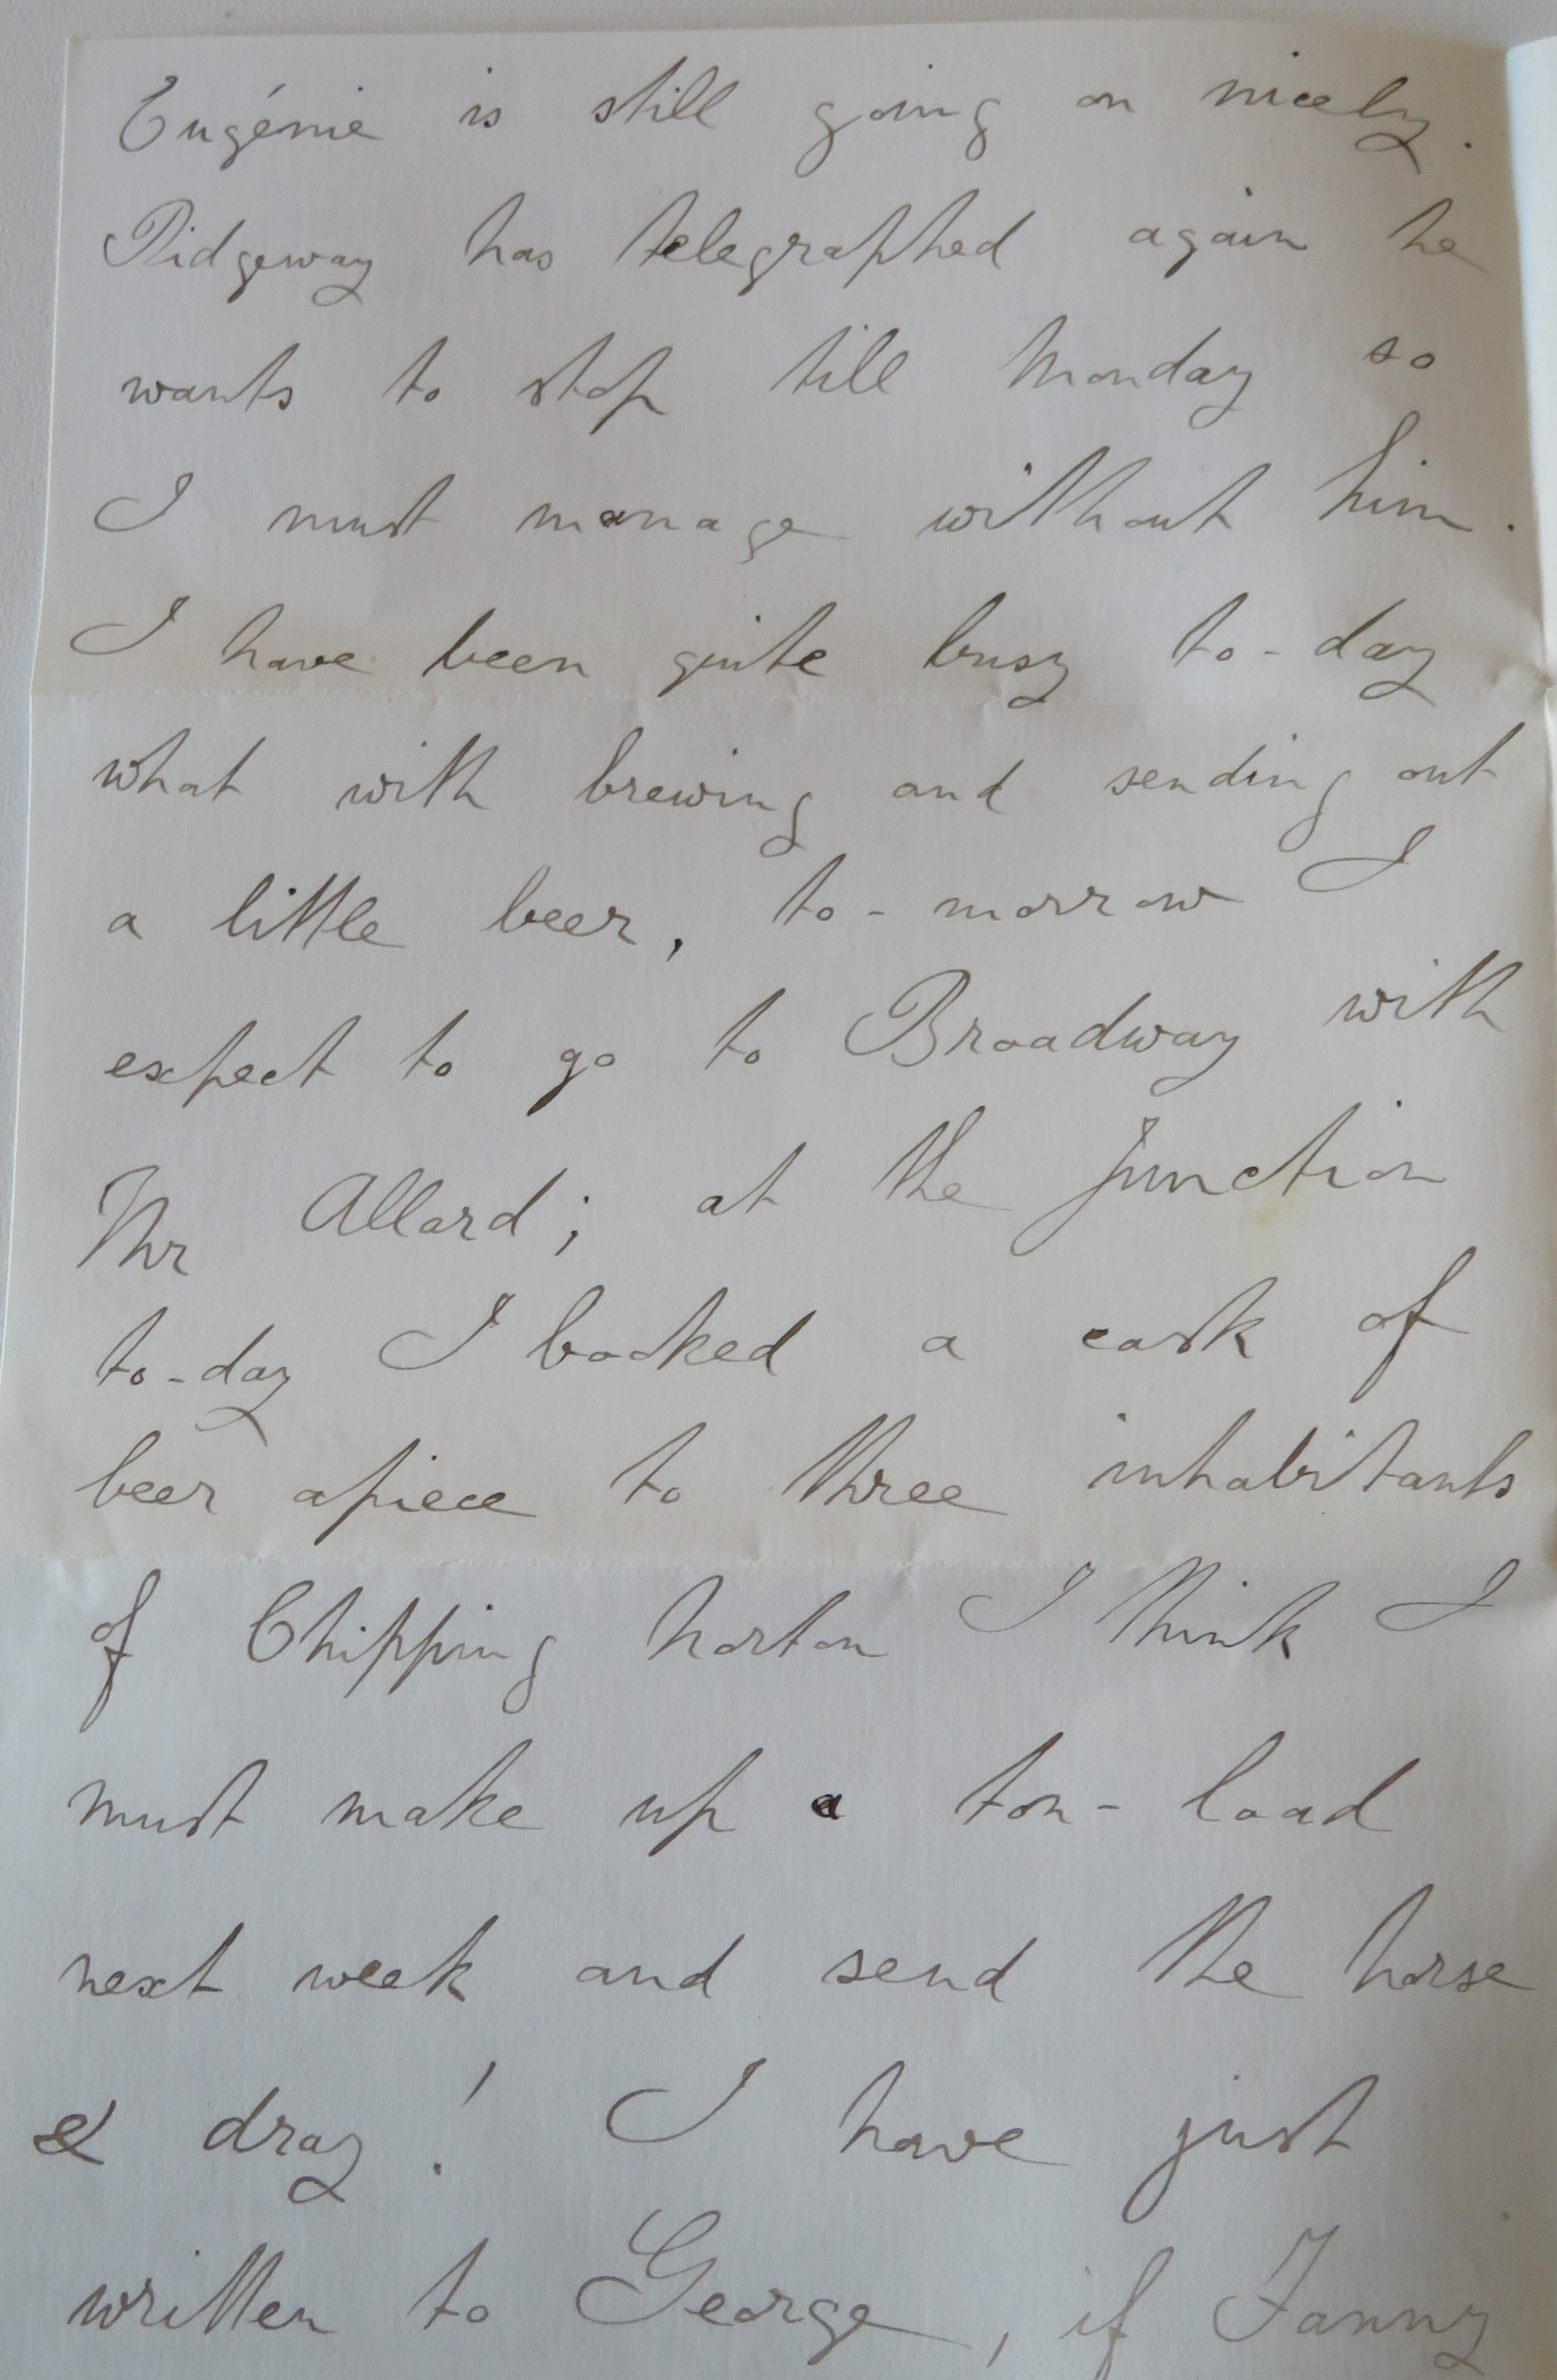 Eugénie is still going on nicely.
Ridgeway has telegraphed again he
wants to stop till Monday so
I must manage without him.
I have been quite busy to-day
what with brewing and sending out
a little beer, to-morrow I
expect to go to Broadway with
Mr Allard; at the Junction
to-day I booked a cask of
beer apiece to three inhabitants
of Chipping Norton I think I
must make up a ton-load
next week and send the horse
& dray! I have just
written to George, if Fanny